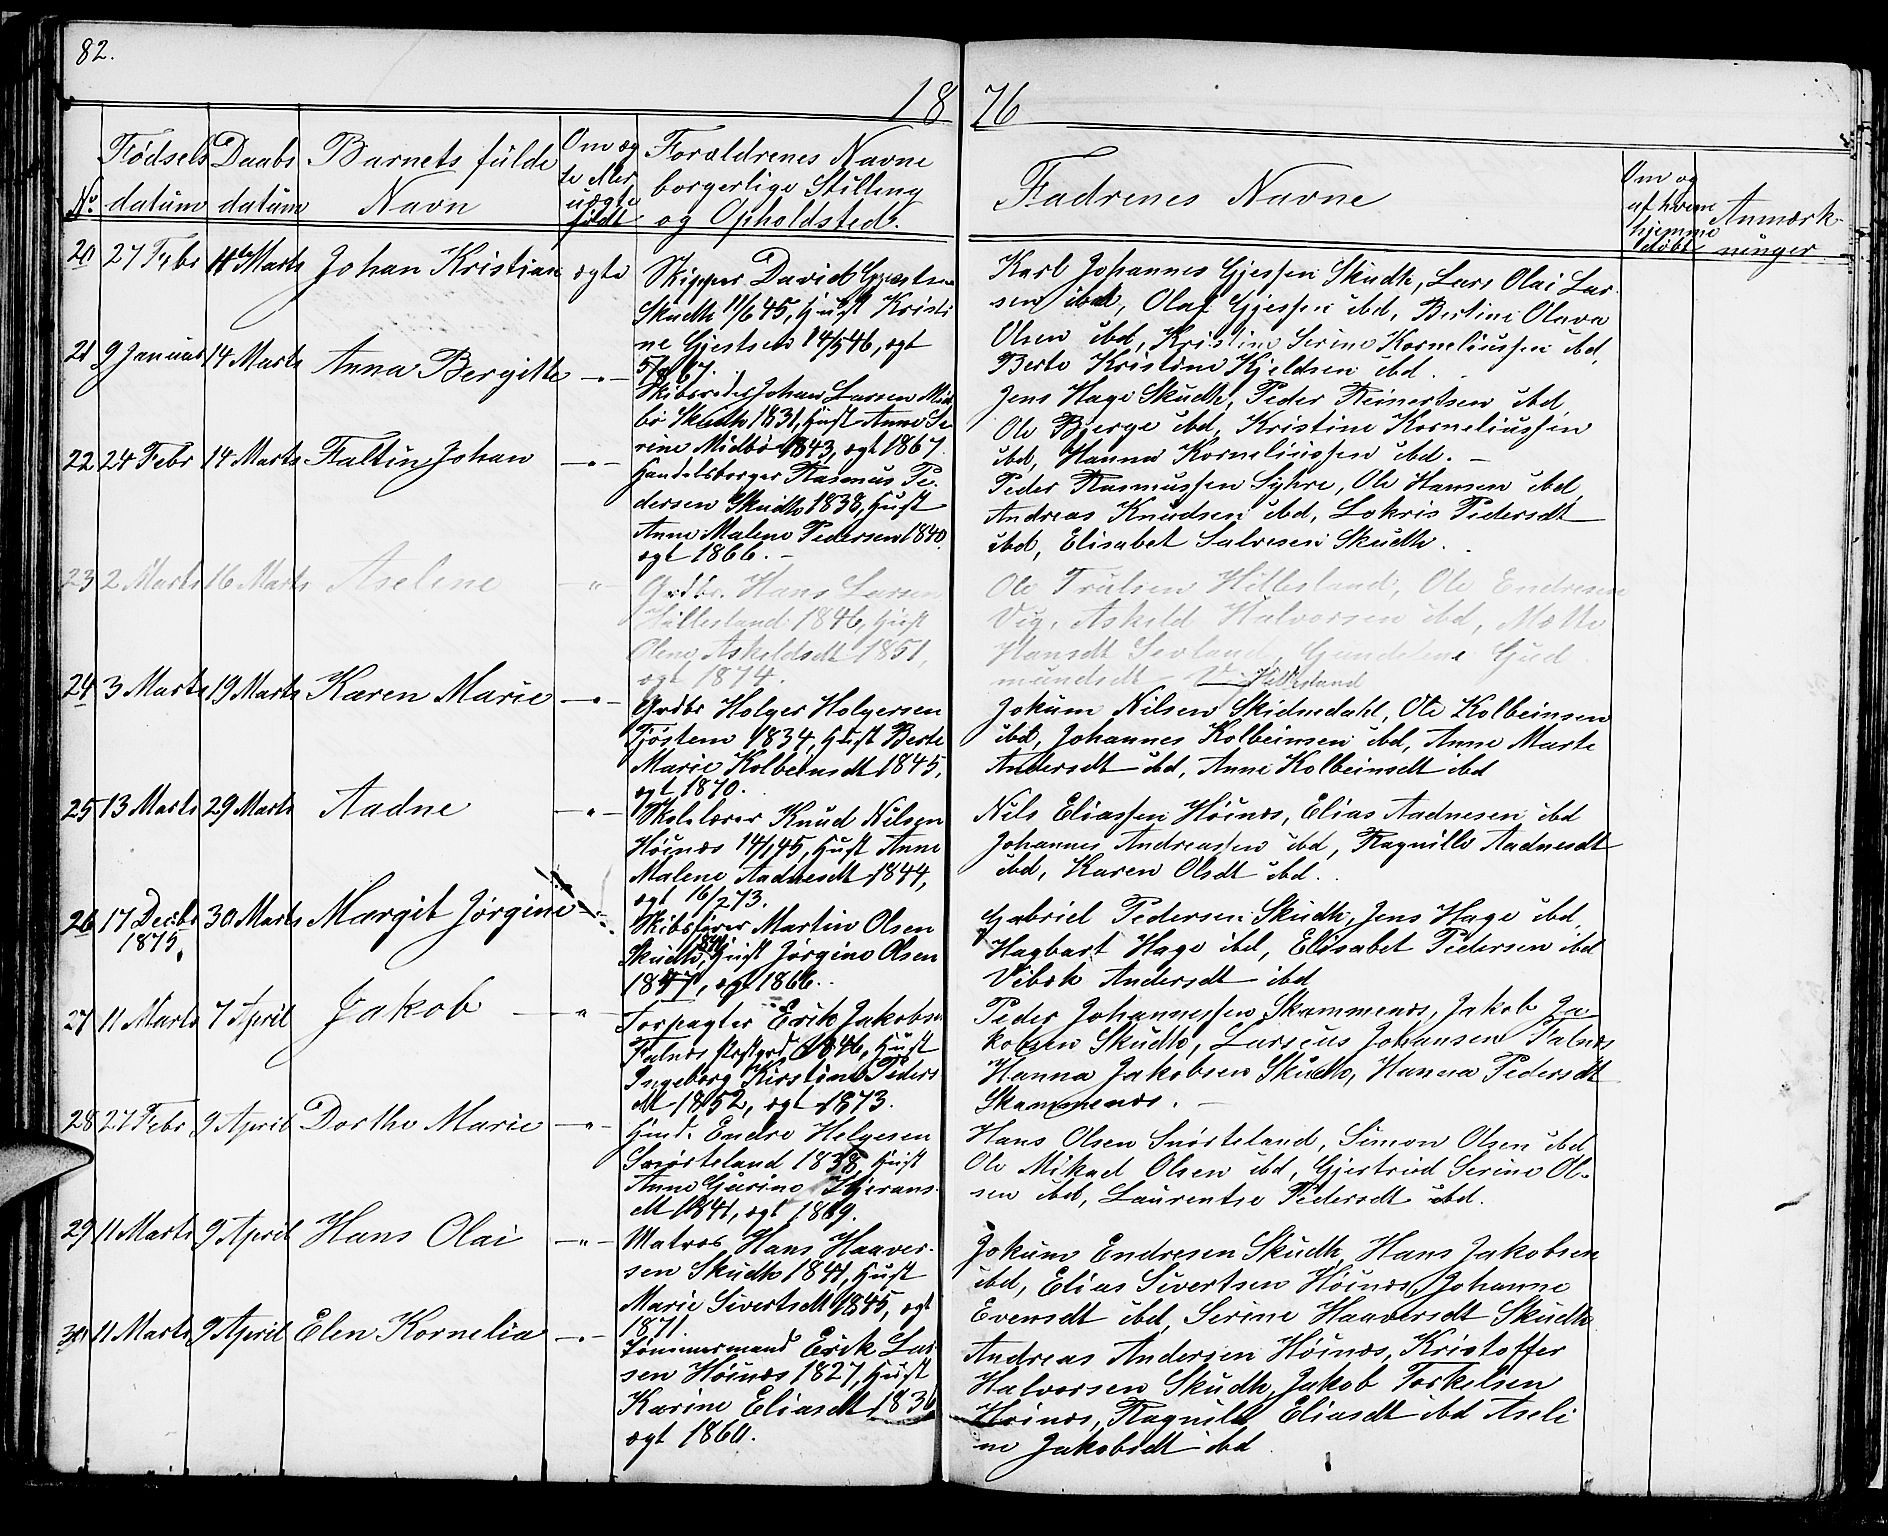 82.
18 76
No. Fødsels datum Daabs datum Barnets fulde Navn Om æg te eller uægte født Forældrenes Navne borgerlige Stilling og Opholdsted.
Fadrenes Navne Om og af hvem hjemme døbt Anmærk- ninger
20 27 Febr Marts Johan Kristian ægte
Skipper David Gjertsen
Skudh 11/6 45, Hust Kristi
ne Gjertsen 14/5 46, ægt
67.
Karl Johannes Gjessen Skudh, Lars Olai Lar-
sen ibd, Olaf Gjessen ibd, Bertine Olava
Olsen ibd, Kristine Serine Korneliussen ibd,
Berte Kristine Kjeldsen ibd.
21 9 Januar 14 Marts Anna Bergitte -"-
Skibsreder Johan Larsen Mid
bø Skudh 1831, Hust Anne Se-
rine Midbø 1843, ægt 1867.
Jens Hage Skudh, Peder Reinertsen ibd,
Ole Bjerge ibd, Kristine Korneliussen
ibd, Hanna Korneliussen ibd. -
22 24 Febr 14 Marts Faltin Johan -"-
Handelsborger Rasmus Pe-
dersen Skudh 1838, Hust
Anne Malene Pedersen 1840,
ægt 1866. -
Peder Rasmussen Syhre, Ole Hansen ibd,
Andreas Knudsen ibd, Lokris Pedersdt
ibd, Elisabet Salvesen Skudh.
23 2 Marts 16 Marts Aselene -"-
Grdbr. Hans Larsen
Hillesland 1846, Hust
Olene Askeldsdt 1851,
ægt 1874.
Ole Trulsen Hillesland, Ole Endresen
Vig, Askeld Halvorsen ibd, Mette
Hansdt Sevland, Gundeline Gud
mundsdt Hillesland
24 3 Marts 19 Marts Karen Marie -"-
Grdbr Holger Holgersen
Tjøstem 1834, Hust Berte
Marie Kolbeinsdt 1845,
ægt 1870.
Jokum Nilsen Skidmdahl, Ole Kolbeinsen
ibd, Johannes Kolbeinsen ibd, Anne Marte
Andersdt ibd, Anne Kolbeinsdt ibd
25 13 Marts 29 Marts Aadne -"-
Skolelærer Knud Nilsen
Høinæs 14/1 45, Hust Anne
Malene Aadnesdt 1844,
ægt 16/2 73.
Nils Eliassen Høinæs, Elias Aadnesen ibd
Johannes Andreassen ibd, Ragnille Aadnesdt
ibd, Karen Olsdt ibd.
26 17 Decbr 1875. 30 Marts Margit Jørgine -"-
Skibsfører Martin Olsen
Skudh, Hust Jørgine Olsen
1847, ægt 1866.
Gabriel Pedersen Skudh, Jens Hage ibd,
Hagbart Hage ibd, Elisabet Pedersen ibd
Vibek Andersdt ibd
27 11 Marts 7 April Jakob -"-
Forpagter Erik Jakobsen
Falnæs Prstgrd, 1846, Hust
Ingeborg Kirstine Peders
dt 1852, ægt 1873.
Peder Johannessen Skammenæs, Jakob Ja-
kobsen Skudh, Larseus Johansen Falnæs
Hanna Jakobsen Skudh, Hanna Pedersdt
Skammenæs. -
28 27 Febr 9 April Dorthe Marie -"-
Hmd. Endre Helgesen
Snørteland 1838, Hust
Anne Gurine Thjerans-
dt 1841, ægt 1869.
Hans Olsen Snørteland, Simon Olsen ibd
Ole Mikael Olsen ibd, Gjertrud Serine Ol-
sen ibd, Laurentse Pedersdt ibd.
29 11 Marts 9 April Hans Olai -"-
Matros Hans Haaver-
sen Skudh 1841, Hust
Marie Sivertsdt 1845, ægt
1871.
Jokum Endresen Skudh, Hans Jakobsen
ibd, Elias Sivertsen Høinæs, Johanne
Evensdt ibd, Serine Haaversdt Skudh
30 11 Marts 9 April Elen Kornelia -"-
Tømmermand Erik Lar
sen Høinæs 1827, Hust
Karine Eliasdt 1836
ægt 1860.
Andreas Andersen Høinæs, Kristoffer
Halvorsen Skudh, Jakob Torkelsen
Høinæs, Ragnila Eliasdt ibd Aseli
ne Jakobsdt ibd